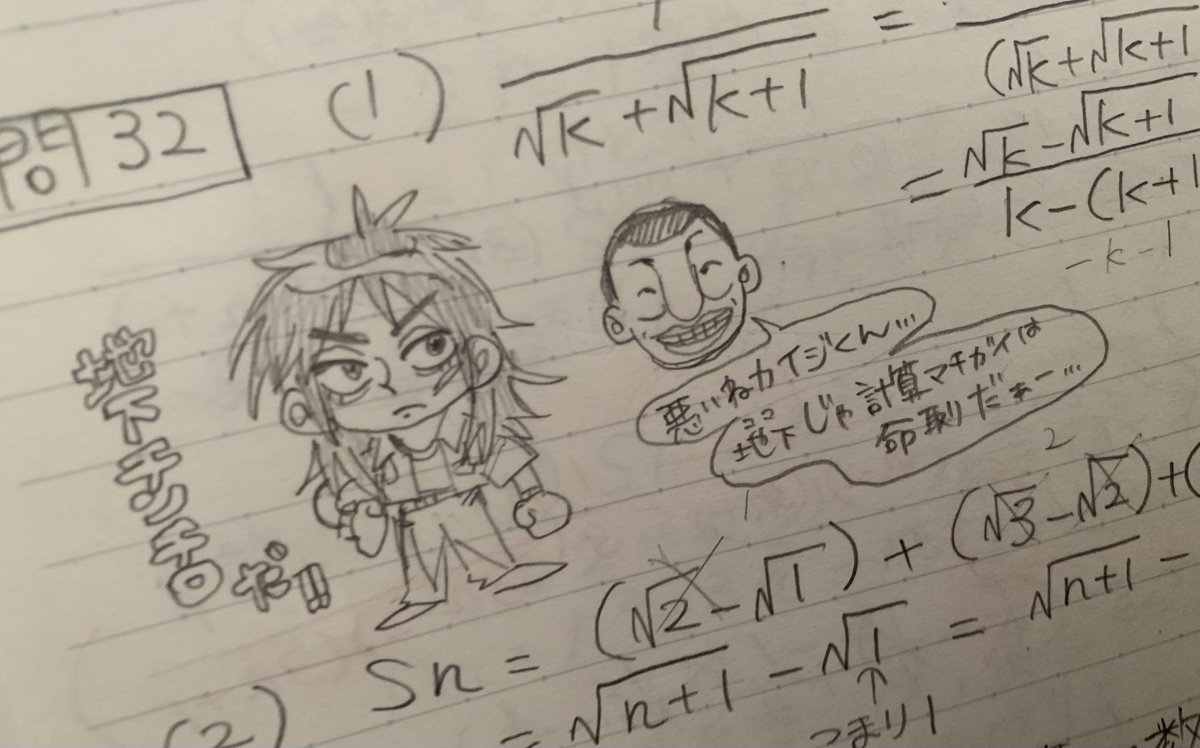 問32
(1) 1/(√k+√k+1) =
(√k+√k+1
= √k-√k+1
k-(k+1
-k-1
地下チンチロだ!!
悪いねカイジくん…
地下じゃ計算マチガイは
ココ
命取りだぁー…
(2) Sn = (√2-√1) + (√3-√2)+(
1
2
= √n+1 - √1 = √n+1 -
↑
つまり1
数